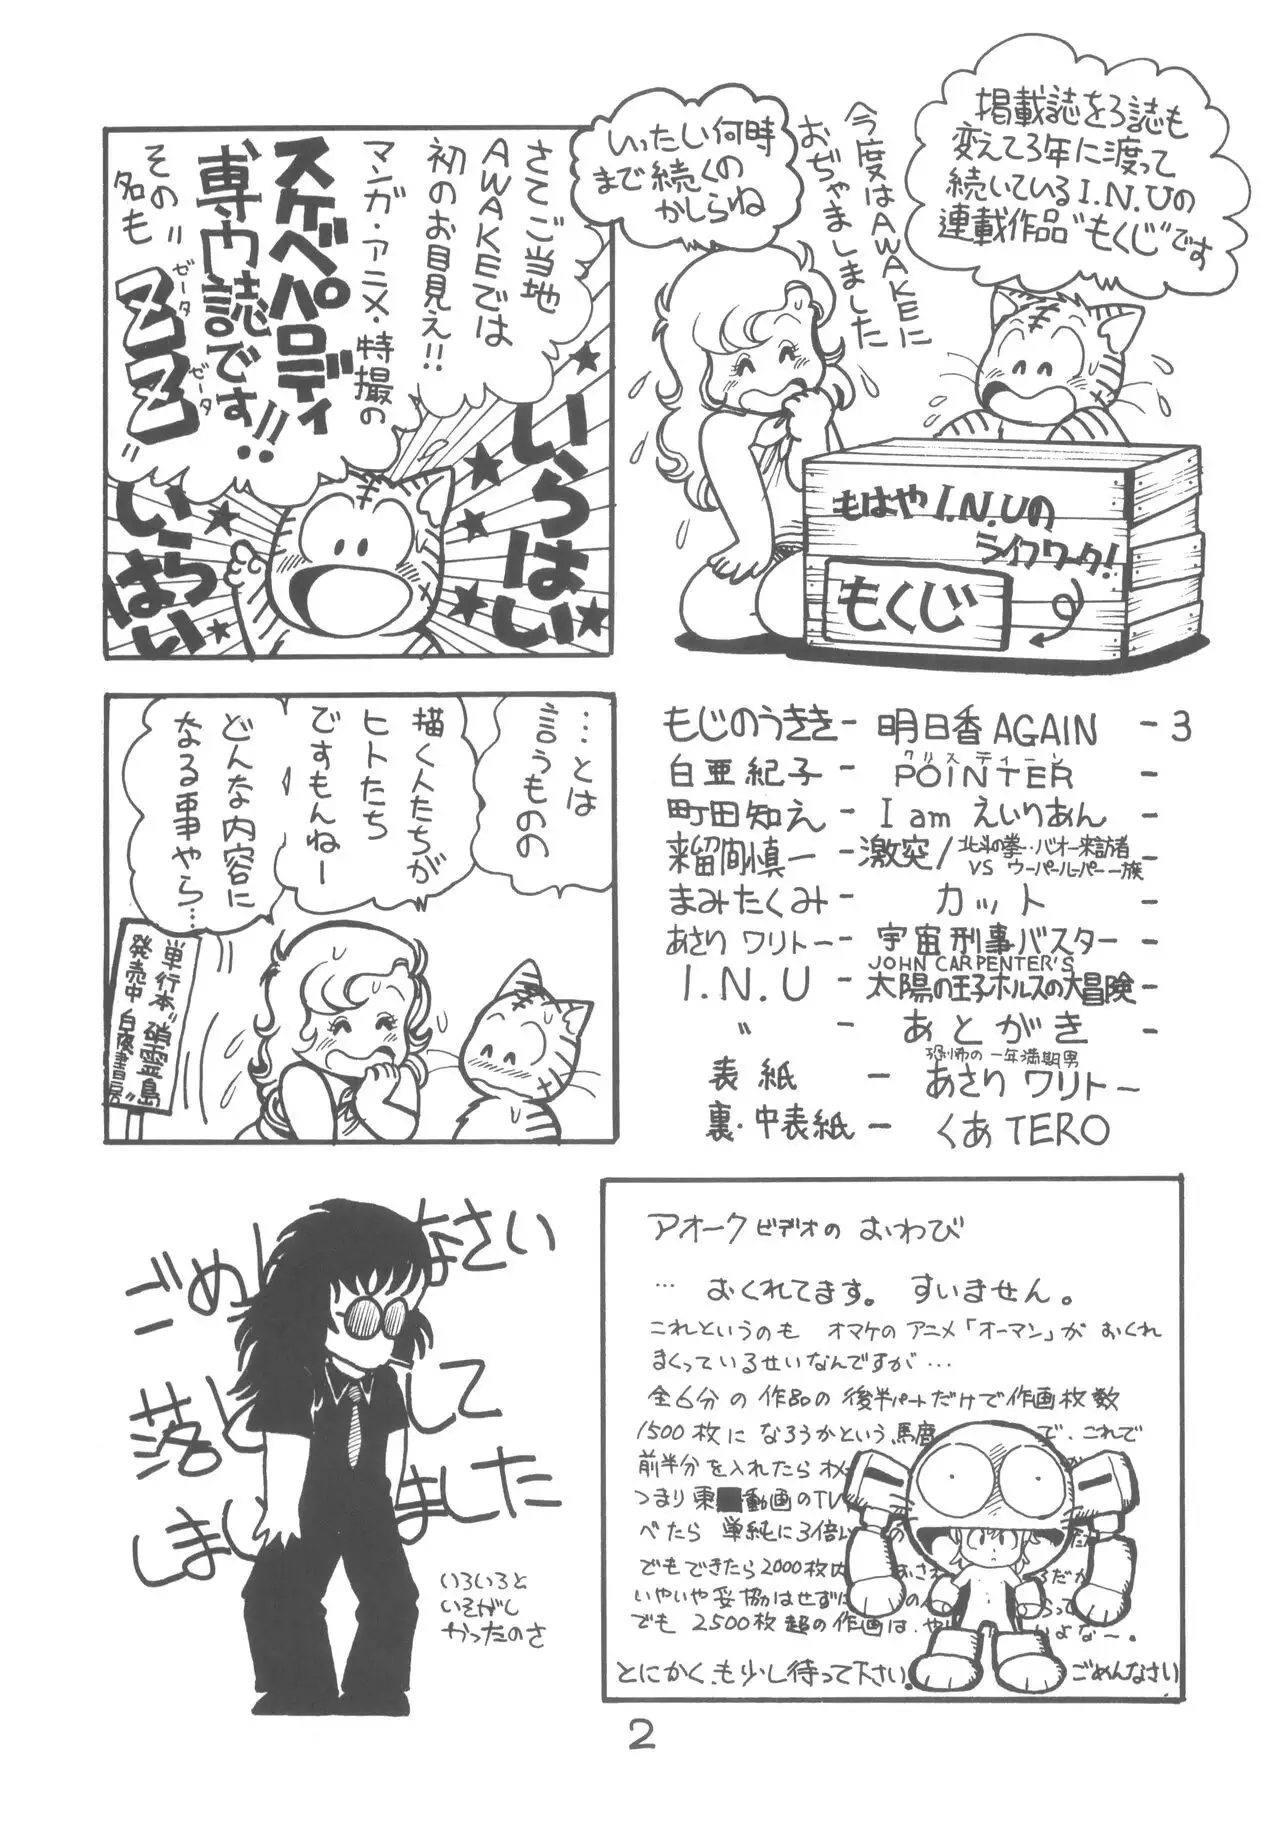 掲載誌を3誌も
変えて3年に渡って
続いているI.N.Uの
連載作品"もくじ"です
今度はAWAKEに
おぢゃましました
いったい何時
まで続くの
かしらね
もはやI.N.Uの
ライフワーク!
もくじ
さてご当地
AWAKEでは
初のお目見え!!
マンガ・アニメ・特撮の
スケベパロディ
専門誌です!!
その名も
"ZZ"
ゼータ
ゼータ
いらはい
いらはい
…とは
言うものの
描く人たちが
ヒトたち
ですもんねー
どんな内容に
なる事やら…
単行本"硝霊島"
発売中 白夜書房
もじのうきき― 明日香AGAIN ―3
白亜紀子 ― POINTER ―
クリスティーン
町田知え ― I am えいりあん ―
来留間慎一 ― 激突/北斗の拳・バオー来訪者 ―
VS ウーパールーパー一族
まみたくみ ― カット ―
あさりワリトー ― 宇宙刑事バスター ―
JOHN CARPENTER'S
I.N.U ― 太陽の王子ホルスの大冒険 ―
〃 ― あとがき ―
恐怖の一年満期男
表紙 ― あさりワリトー
裏・中表紙 ― くあTERO
ごめんなさい
落としてし
まいました
いろいろと
いそがし
かったのさ
アオークビデオの おわび
… おくれてます。 すいません。
これというのも オマケのアニメ「オーマン」が おくれ
まくっているせいなんですが…
全6分の作品の後半パートだけで作画枚数
1500枚になろうかという、馬鹿 で、これで
前半分を入れたら
つまり東■動画のTV
べたら 単純に3倍以 の
でもできたら2000枚内 おさ ろだか
いやいや妥協はせずに
でも 2500枚超の作画は、や かよな〜。
とにかく、も少し待って下さい。 ごめんなさい
2